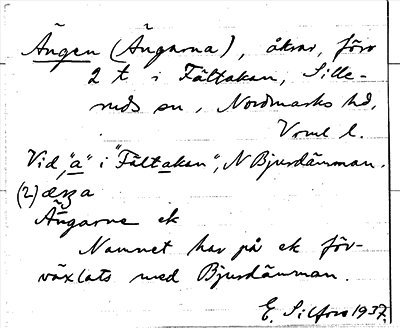 Ängen (Ängarna), åkrar, förr
2 t i Fältakan, Sille-
ruds sn, Nordmarks hd,
Vrml l.
Vid "a" i "Fältakan", N Bjurdämman.
(2) æŋa
Ängarne ek
Namnet har på ek för-
växlats med Bjurdämman.
E. Silfors 1937.